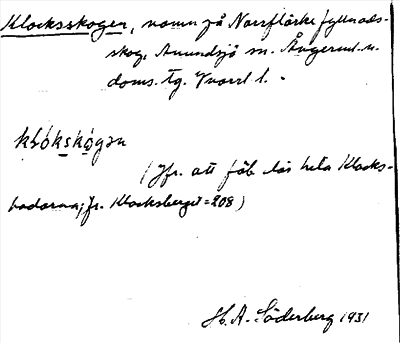 Klocksskogen, namn på Norrflärke fyllnads-
skog, Anundsjö sn. Ångerml. n.
doms. tg. Vnorrl l. -
klókskógen
(Jfr. att fäb. lås heta Klocks-
bodarna; jr. Klocksberget = 208)
H. A. Söderberg 1931